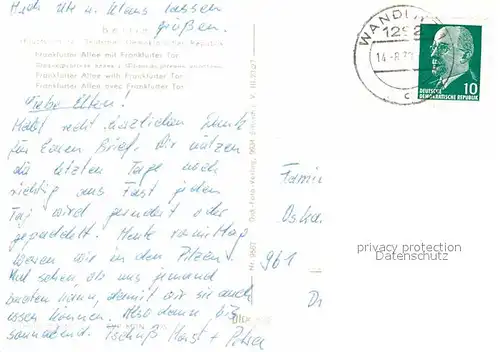 Auch Ute u. Klaus lassen
grüßen.
berlin
Hauptstadt der Deutschen Demokratischen Republik
Frankfurter Allee mit Frankfurter Tor
Frankfurter Allee with Frankfurter Tor
Frankfurter Allee avec Frankfurter Tor
Liebe Eltern!
Habt recht herzlichen Dank
für Euren Brief. Wir nutzen
die letzten Tage noch
richtig aus. Fast jeden
Tag wird gewandert oder
gepaddelt. Heute vormittag
waren wir in den Pilzen.
Mal sehen ob uns jemand
braten kann, damit wir sie auch
essen können. Also dann bis
Sonnabend. Tschüß Horst + Petra
WANDLITZ
1292
14.-8.7
c
10
DEUTSCHE
DEMOKRATISCHE REPUBLIK
Famili
Oska
961
privacy protection
Datenschutz